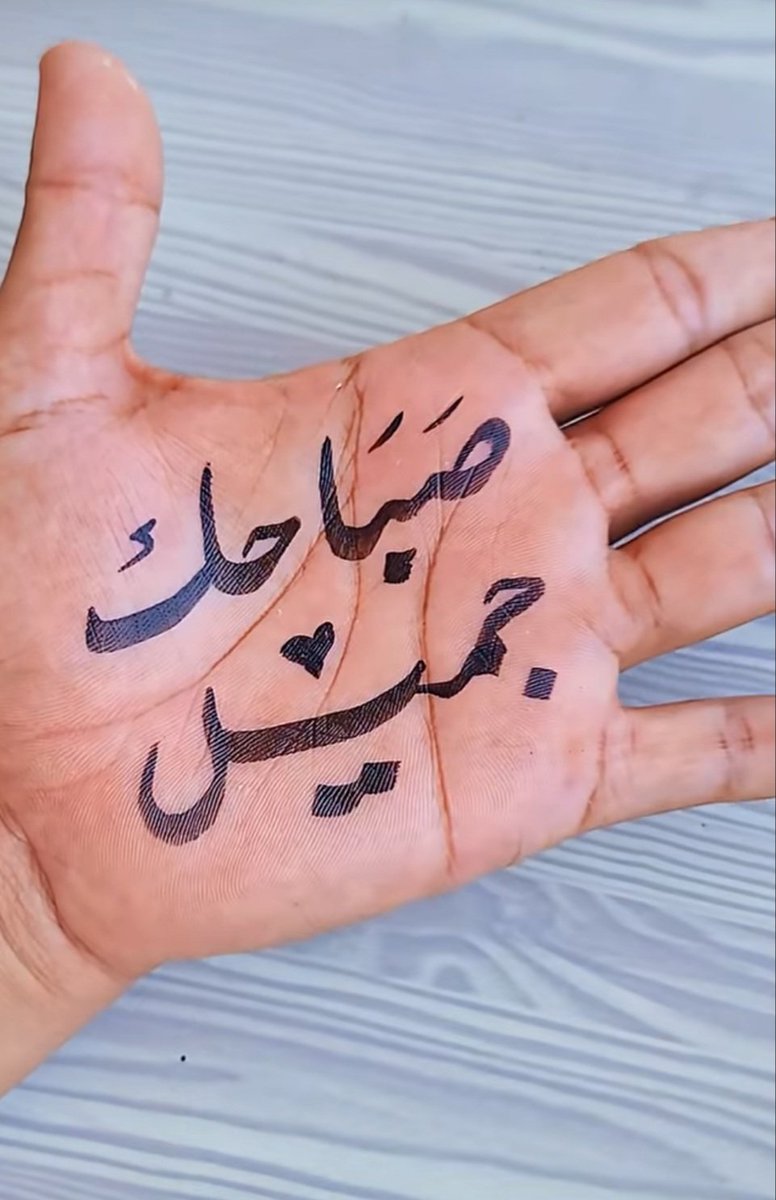 صَبَاحك
جميل